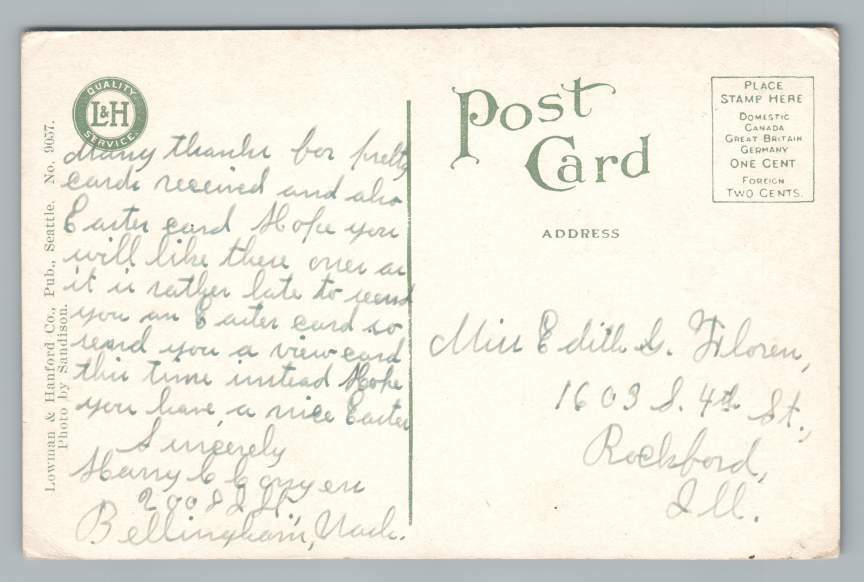 QUALITY
L&H
SERVICE.
Lowman & Hanford Co., Pub., Seattle. No. 9057.
Photo by Sandison.
Many thanks for pretty
cards received and also
Easter card Hope you
will like these ones as
it is rather late to send
you an Easter card so
send you a view card
this time instead Hope
you have a nice Easter
Sincerely
Harry C
Bellingham, Wash.
Post
Card
ADDRESS
PLACE
STAMP HERE
DOMESTIC
CANADA
GREAT BRITAIN
GERMANY
ONE CENT
FOREIGN
TWO CENTS.
Miss Edith G. Floren,
1603 S. 4th St.,
Rockford,
Ill.